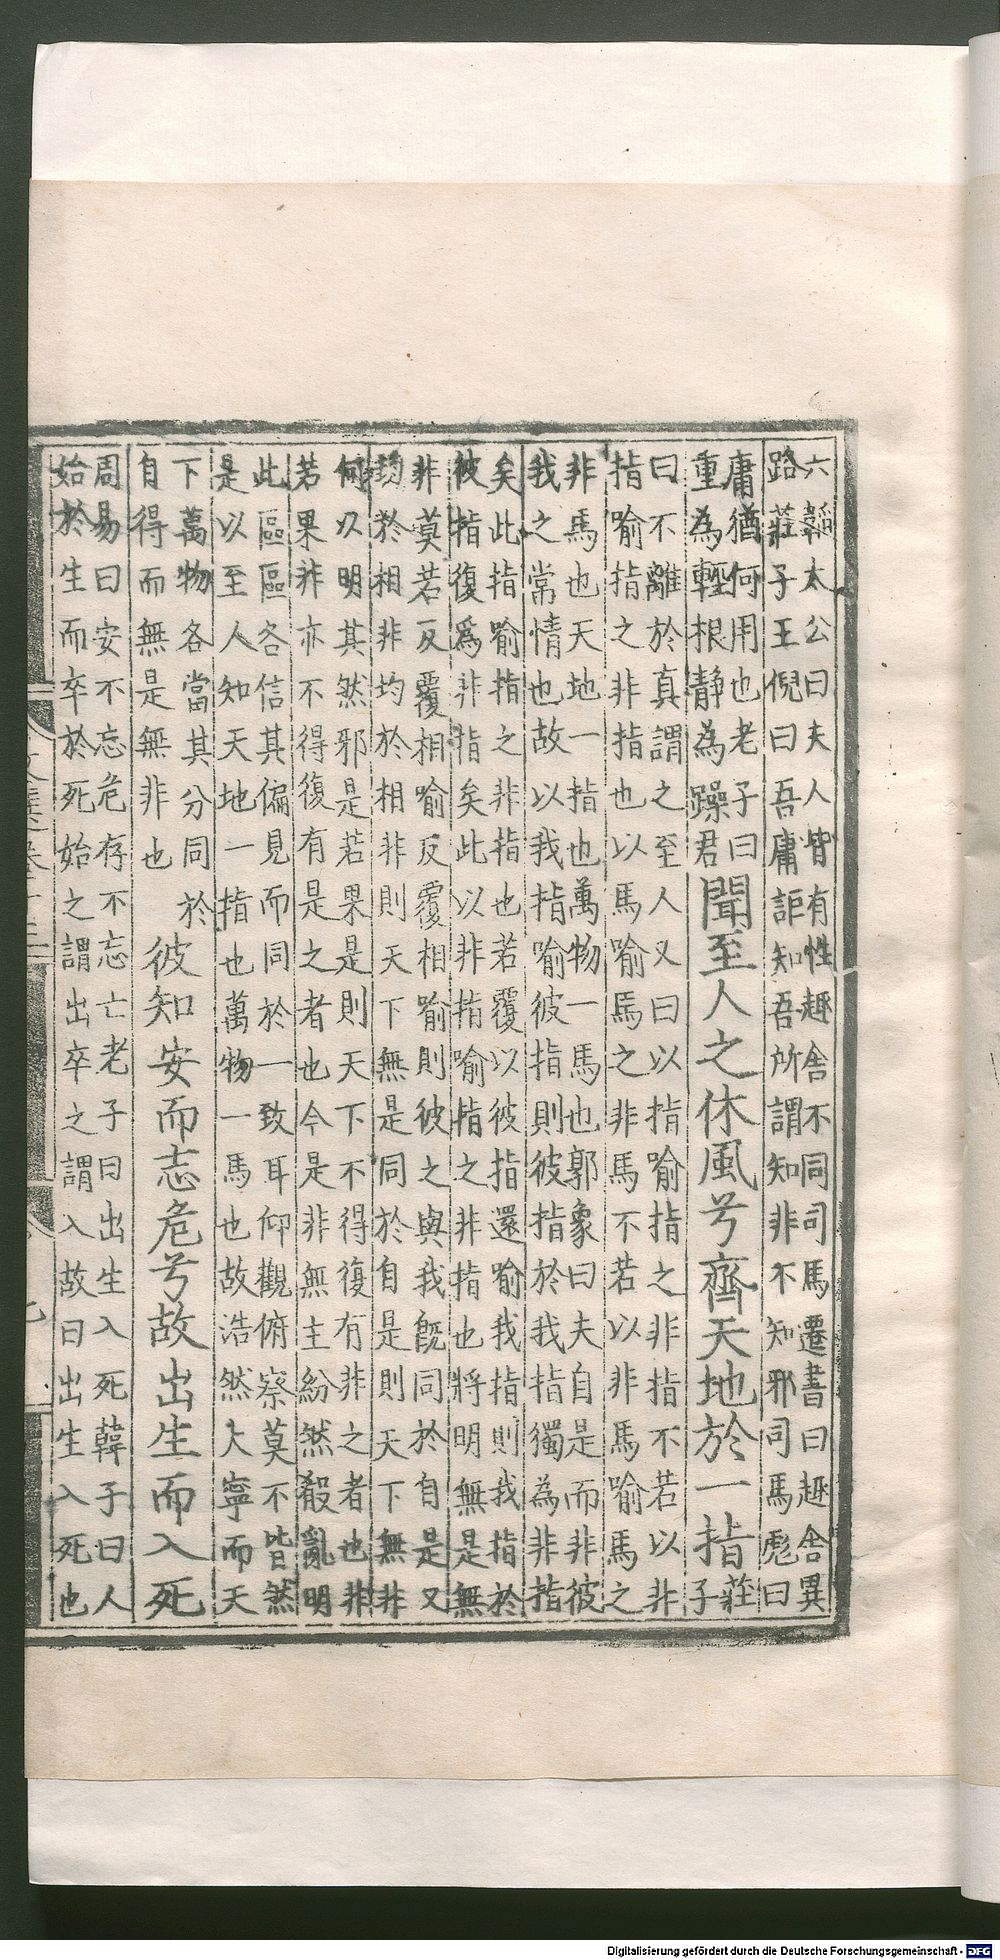 六韜太公曰夫人皆有性趣舍不同司馬遷書曰趣舍異
路莊子王倪曰吾庸詎知吾所謂知非不知邪司馬彪曰
庸猶何用也老子曰
重為輕根靜為躁君
聞至人之休風兮齊天地於一指
莊
子
曰不離於真謂之至人又曰以指喻指之非指不若以非
指喻指之非指也以馬喻馬之非馬不若以非馬喻馬之
非馬也天地一指也萬物一馬也郭象曰夫自是而非彼
我之常情也故以我指喻彼指則彼指於我指獨為非指
矣此指喻指之非指也若覆以彼指還喻我指則我指於
彼指復為非指矣此以非指喻指之非指也將明無是無
非莫若反覆相喻反覆相喻則彼之與我既同於自是又
均於相非均於相非則天下無是同於自是則天下無非
何以明其然邪是若果是則天下不得復有非之者也非
若果非亦不得復有是之者也今是非無主紛然殽亂明
此區區各信其偏見而同於一致耳仰觀俯察莫不皆然
是以至人知天地一指也萬物一馬也故浩然大寧而天
下萬物各當其分同於
自得而無是無非也
彼知安而忘危兮故出生而入死
周易曰安不忘危存不忘亡老子曰出生入死韓子曰人
始於生而卒於死始之謂出卒之謂入故曰出生入死也
Digitalisierung gefördert durch die Deutsche Forschungsgemeinschaft - DFG